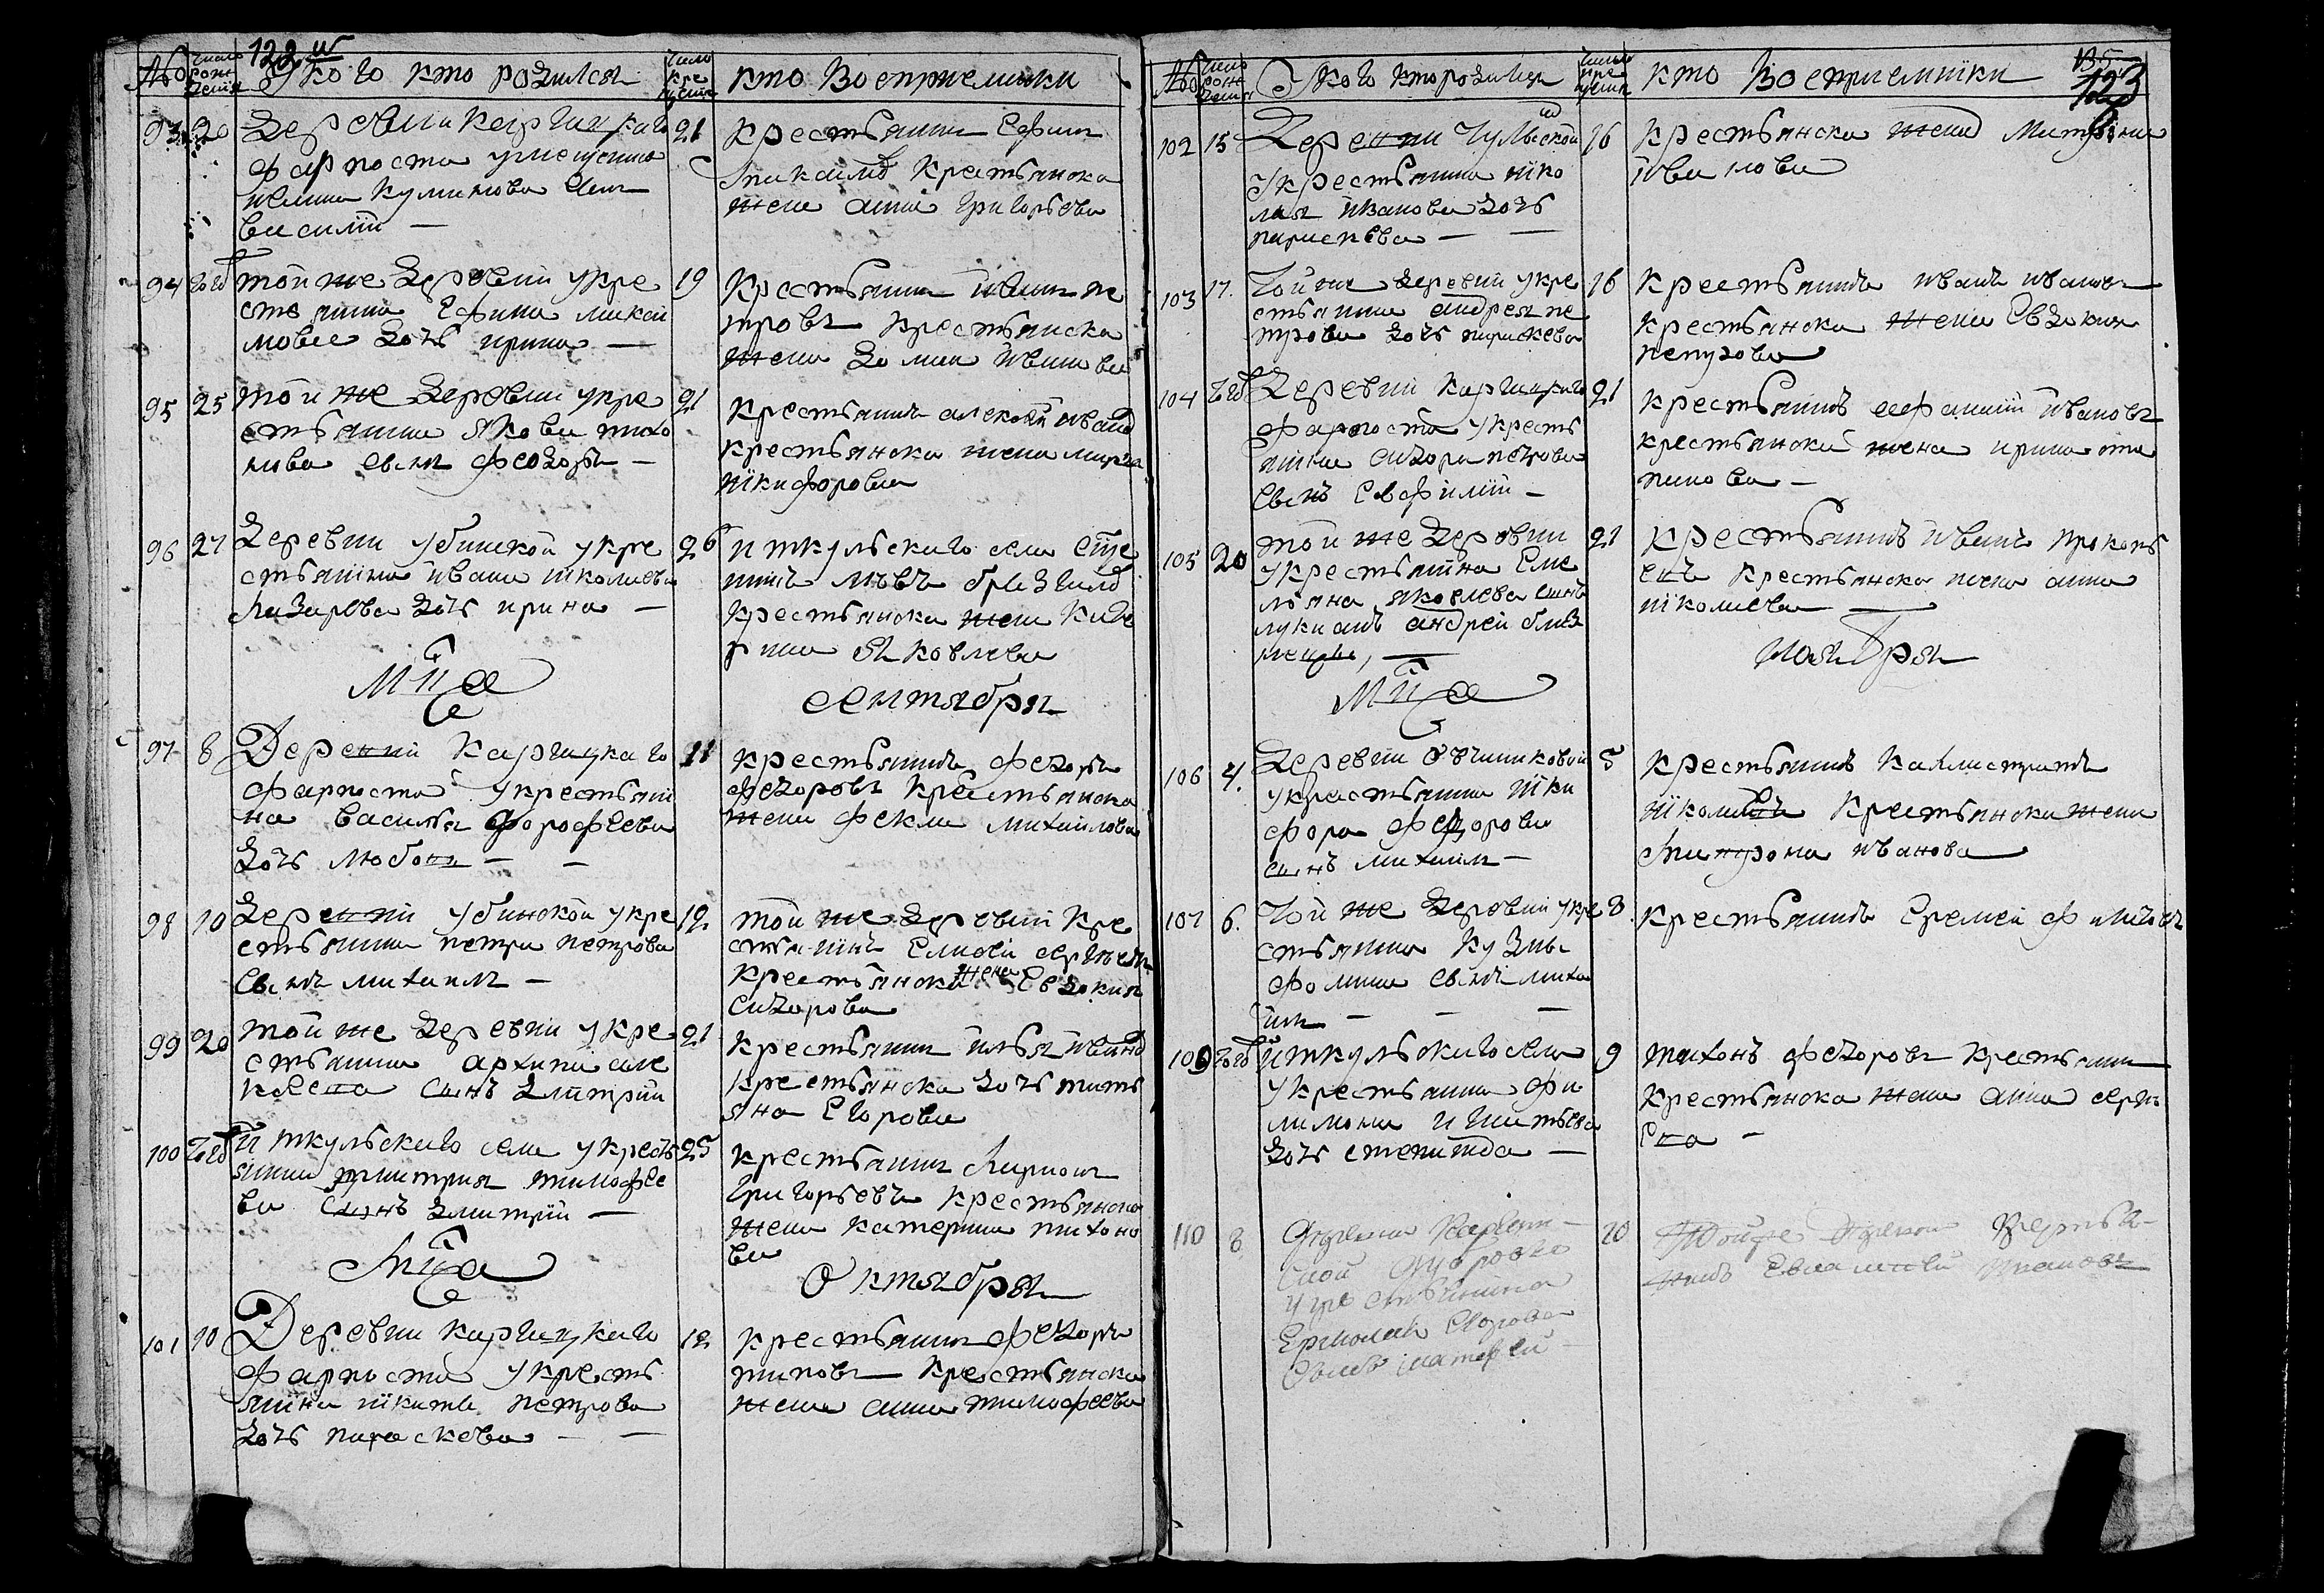 122
№
число рождения
У кого кто родился
число крещения
кто Восприемники
93
20
Деревни каргацкаго
форпоста умещанина
ивана куликова сынъ
василiй —
21
Крестьянин Ефим
Михаилов Крестьянска
жена анна григорьева
94
тойже деревни укре
стьянина Ефима михаи
лова дочь ирина —
19
Крестьянин иван пе
тровъ крестьянска
жена домна иванова
95
25
той же деревни укре
стьянина якова тихо
нова сынъ федоръ —
21
крестьянинъ алексей иванов
крестьянска жена марфа
никифорова
96
27
Деревни убинской укре
стьянина ивана николаева
лазарева дочь ирина —
26
иткульскаго села
крестьянска жена кате
рина яковлева
Мца
сентября
97
8
Деревни каргацкаго
форпоста укрестьяни
на василья дорофеева
дочь любовь — —
11
крестьянинъ федоръ
федоровъ крестьянска
жена фекла михаилова
98
10
Деревни убинской укре
стьянина петра петрова
сынъ михаилъ —
12
той же деревни кре
стьянинъ Елисей сергеевъ
крестьянска жена Евдокия
сидорова
99
20
той же деревни укре
стьянина архипа але
ксеева сынъ дмитрий
21
крестьянин илья иванов
крестьянска дочь тать
яна Егорова
100
иткульскаго села укресть
янина дмитрия тимофее
ва сынъ дмитрий —
25
крестьянин Ларион
григорьевъ крестьянска
жена катерина тихоно
ва
Мца
октября
101
10
Деревни каргацкаго
форпоста укресть
янина никиты петрова
дочь параскева — —
12
крестьянин федоръ
титовъ крестьянска
жена анна тимофеева
135
123
№
число рождения
У кого кто родился
число крещения
кто Восприемники
102
15
Деревни чулымской
укрестьянина нико
лая иванова дочь
параскева — —
16
крестьянска жена Матрона
иванова
103
17.
той же деревни укре
стьянина андрея пе
трова дочь параскева
16
крестьянинъ иванъ ивановъ
крестьянска жена Евдокия
петрова
104
Деревни каргацкаго
форпоста укресть
янина сидора петрова
сынъ Евфимий —
21
крестьянинъ иванов
крестьянска жена ирина ота
пова —
105
20
той же деревни
укрестьянина Еме
льяна яковлева сынъ
лукианъ андрей близ
нецы, —
21
крестьянинъ иванъ прокопь
евъ крестьянска жена анна
николаева —
Мца
Ноября
106
4.
Деревни овчинниковой
укрестьянина ники
фора федорова
сынъ михаил —
5
крестьянинъ каллистратъ
николаевъ крестьянска жена
матрона иванова
107
6.
той же деревни укре
стьянина кузмы
фомина сынъ миха
илъ — — —
8.
крестьянинъ Еремей филиповъ
109
иткульскаго села
укрестьянина фи
лимона игнатьева
дочь степанида —
9
тихонъ федоровъ крестьянин
крестьянска жена анна серге
ева —
110
8
укрестьянина
Ермолая Егорова
сынъ матвей —
10
тойже
Ивановъ